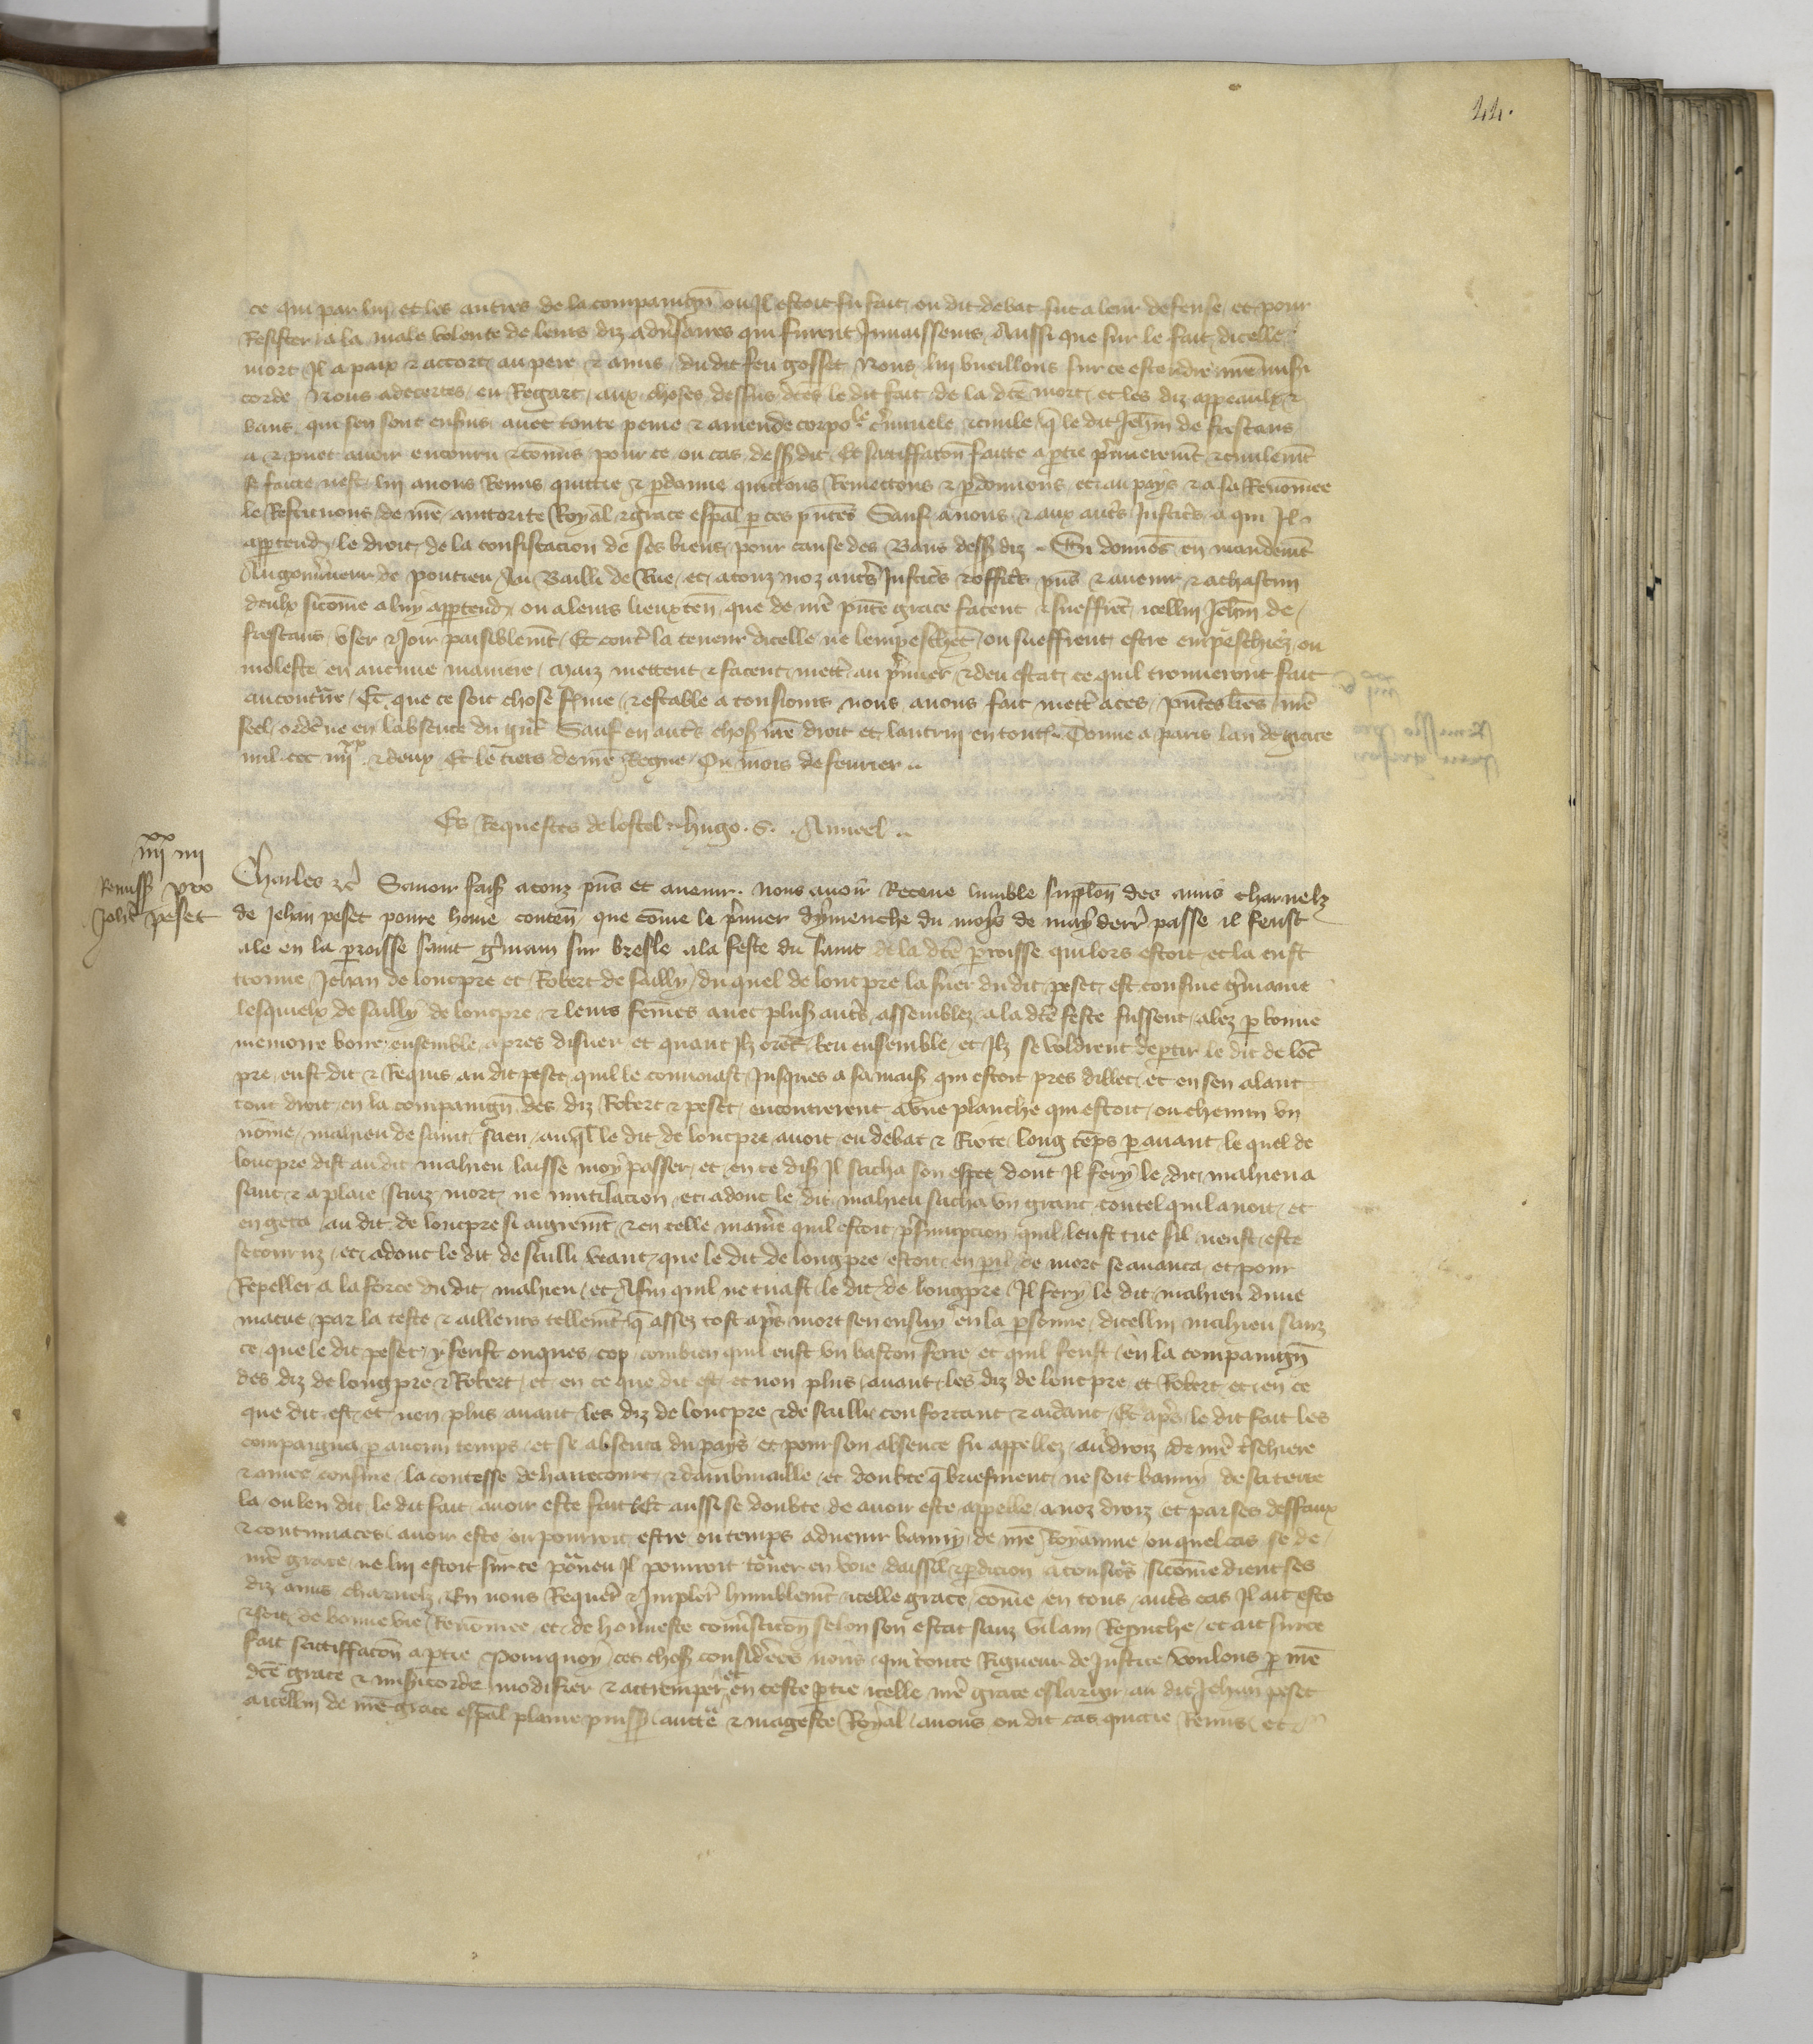 44.
ce qui par lui et les autres de la compaign̄ ou Il estoit fu fait ou dit debat fut a leur defense et pour
Resister a la male volente de leurs diz adv̄saires qui furent Innaissents Aussi que sur le fait dicelle
mort Il a paix & accort au pere & amis du dit feu gosset Nous lui vueillons sur ce estendre nr̄e miseri
corde Nous adecertes en Regart aux choses dessus dc̄es le dit fait de la dc̄e mort et les diz appeaulx &
bans qui sen sont ensuis avec toute peine & amende corpole c̄minele & civile q̄ le dit Jeh̄n de frestans
a & puet avoir encouru & com̄is pour ce ou cas dess9 dit Et satiffacōn faicte a p̄tie p̄mierem̄t & civilem̄t
se faicte nest lui avons Remis quittie & p̄donne quictons Remettons & p̄donnons et au pays & a sa Renom̄ee
le Restituons de nr̄e auttorite Royal & grace esp̄al p ces pn̄tes Sauf a nous & aux autr̄s Justic̄s a qui Il
app̄tend le droit de la confiscacion de ses biens pour cause des Bans dess9 diz Si donnōs en mandem̄t
Au gouv̄neur de pontieu Au Bailli de Rue et a touz noz autr̄s Justic̄s & offic̄s pn̄s & avenir & a chascun
deulx sicom̄e a luy app̄tend ou a leurs lieuxten̄ que de nr̄e pn̄te grace facent & sueffrēt icellui Jeh̄n de
frestans user & Joir paisiblem̄t Et contr̄ la teneur dicelle ne lempeschēt ou sueffrent estre empeschiez ou
moleste en aucune maniere maiz mettent & facent mett̄ au p̄mier & deu estat ce quil trouveront fait
au contr̄re Et que ce soit chose ferme & estable a tousiours nous avons fait mett̄ a ces pn̄tes lr̄es nr̄e
seel ordēne en labsence du gr̄nt Sauf en autr̄s chos9 nr̄e droit et lautruy en tout9 Donne a Paris lan de grace
mil ccc iiiixx & deux Et le tiers de nr̄e Regne Ou mois de fevrier
Es Requestes de lostel Hugo. S. Anneel
iiiixx iiii
Remiss9 pro
Joh̄e peset
Charles &c̄ Savoir fais9 a touz pn̄s et avenir nous avoir Receue lumble supl̄on des amis charnelz
de Jehan peset povre home conten̄ que com̄e le p̄mier dymenche du moys de may derr̄ passe il feust
ale en la p̄roisse saint ḡmain sur bresle a la feste du saint de la dc̄e p̄roisse qui lors estoit et la eust
trouve Jehan de loncpre et Robert de sailly du quel de loncpre la suer du dit peset est cousine ḡmaine
lesquelx de sailly de loncpre & leurs fem̄es avec plus9 autr̄s assemblez a la dc̄e feste fussent alez p bonne
memoire boire ensemble apres disner et quant Ilz orēt beu ensemble et Ilz se voldrent dep̄tir le dit de lōc
pre eust dit & Requis au dit peset quil le convoiast Jusques a sa mais9 qui estoit pres dillec et en sen alant
tout droit en la compaign̄ des diz Robert & peset encontrerent a une planche qui estoit ou chemin un
nōme mahieu de saint saen au q̄l le dit de loncpre avoit eu debat & Riote long tēps p avant le quel de
loncpre dist au dit mahieu laisse moy passer et en ce dis9 Il sacha son espee dont Il fery le dit mahieu a
sanc & a plaie sanz mort ne mutilacion et adonc le dit mahieu sacha un grant coutel quil avoit et
en geta au dit de loncpre si aigrem̄t & en telle manir̄e quil estoit p̄sumpcion quil leust tue sil neust este
secouruz et adonc le dit de sailli veant que le dit de longpre estoit en p̄il de mort se avanca et pour
Repeller a la force du dit mahieu et Afin quil ne tuast le dit de longpre Il fery le dit mahieu dune
macue par la teste & ailleurs tellem̄t q̄ assez tost apr̄s mort sen ensuy en la p̄sonne dicellui mahieu sanz
ce que le dit peset y ferist onques cop combien quil eust un baston ferre et quil feust en la compaign̄
des diz de longpre & Robert et en ce que dit est et non plus avant les diz de loncpre et Robert et en ce
que dit est et non plus avant les diz de loncpre & de sailli confortant & aidant Et apr̄s le dit fait les
compaigna p aucun temps et se absenta du pays et pour son absence fu appellez au droiz de nr̄e tr̄schiere
& amee cousine la contesse de harecourt & daubmalle et doubte q̄ briefment ne soit banny de sa terre
la ou len dit le dit fait avoir este fait Et aussi se doubte de avoir este appelle a noz droiz et par ses deffaux
& contumaces avoir este ou pourroit estre ou temps advenir banny de nr̄e Royaume ou quel cas se de
nr̄e grace ne lui estoit sur ce p̄veu Il pourroit tōrner en voie dexil & p̄dicion a tousiō̄s sicom̄e dient ses
diz amis charnelz En nous Requer̄ & Implor̄ humblem̄t icelle grace com̄e en tous autr̄s cas Il ait este
& soit de bonne vie Renom̄ee et de honneste conv̄sacōn selon son estat sanz vilain Reprouche et ait sur ce
fait satiffacōn a p̄tie Pourquoy ces chos9 consid̄ees nous qui toute Rigueur de Justice voulons p nr̄e
dc̄e grace & misericorde modifier & attremper et en ceste p̄tie icelle nr̄e grace eslargir au dit Jehan peset
a icellui de nr̄e grace esp̄al plaine puiss9 auctē & magesté Royal avons ou dit cas quictie Remis et